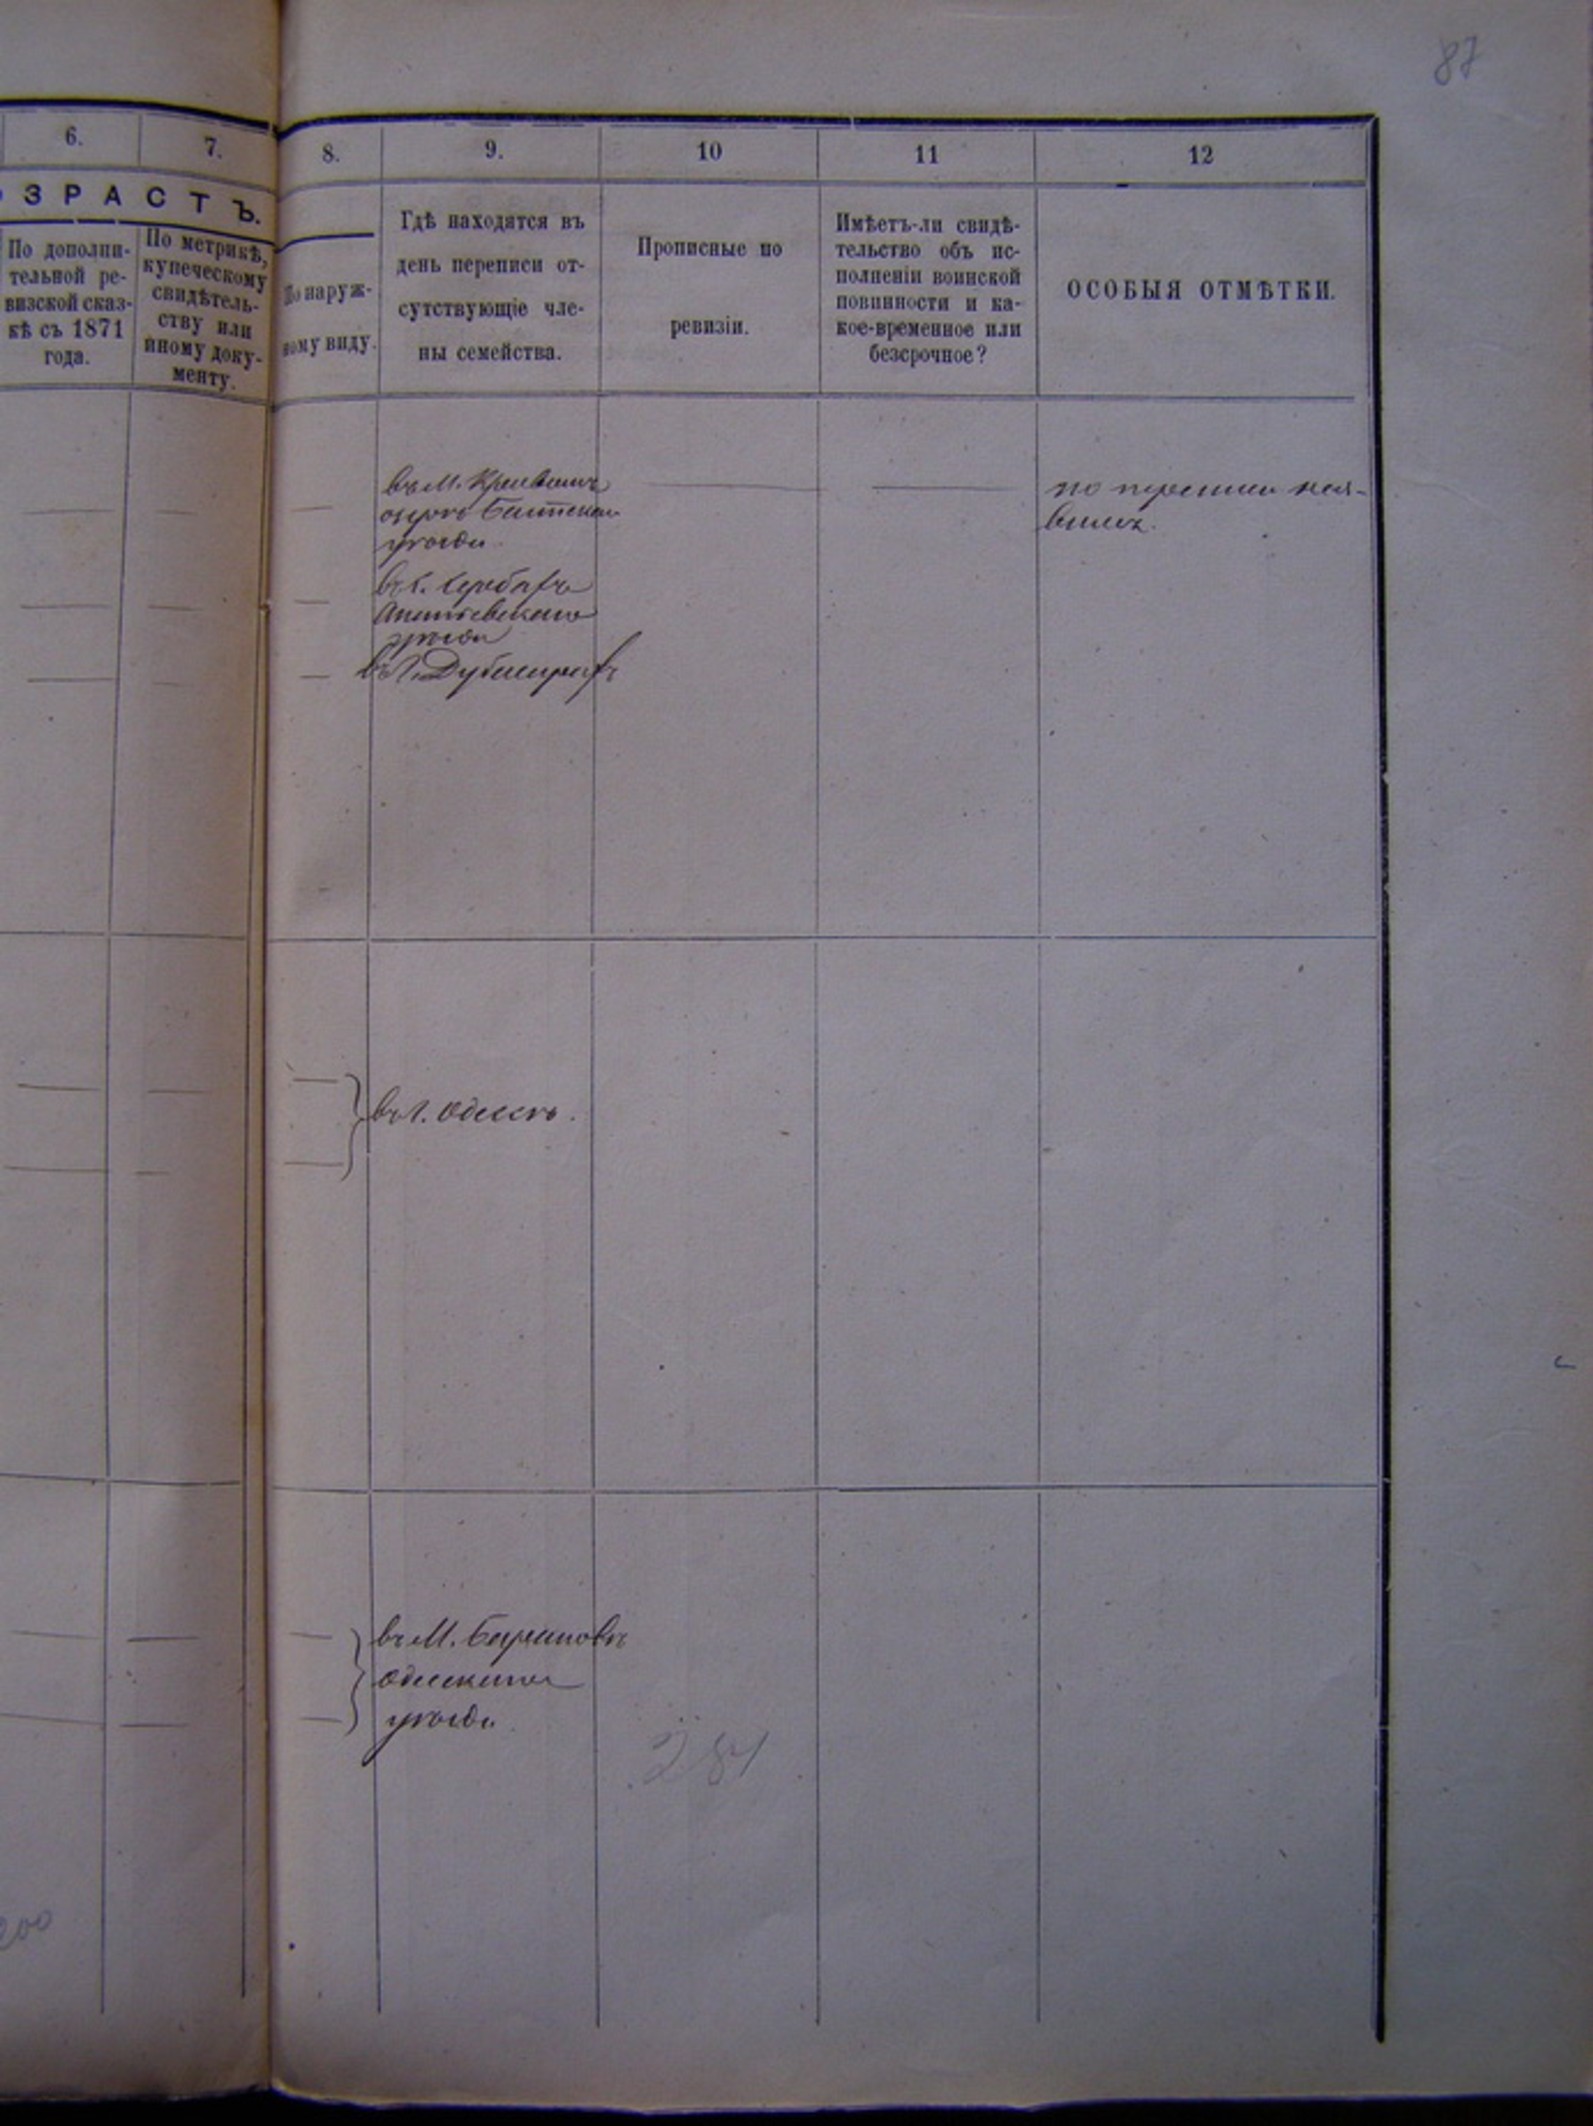 87
6.
7.
8.
9.
10
11
12
ЗРАСТЪ.
По дополни-
тельной ре-
визской сказ-
кѣ съ 1871
года.
По метрикѣ,
купеческому
свидѣтель-
ству или
иному доку-
менту.
По наруж-
ному виду.
Гдѣ находятся въ
день переписи от-
сутствующіе чле-
ны семейства.
Прописные по
ревизіи.
Имѣетъ-ли свидѣ-
тельство объ ис-
полненіи воинской
повинности и ка-
кое-временное или
безсрочное?
ОСОБЫЯ ОТМѢТКИ.
въ М.
уѣзда
по переписи не я-
вился.
въ г.
Ананьевскаго
уѣзда
въ г. Дубоссарахъ
въ г. Одессѣ.
въ М.
Одесскаго
уѣзда.
284
200